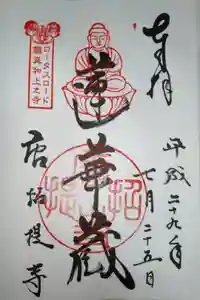 奉拝
平成二十九年
七月二十五日
蓮華蔵
ロータスロード
鑑真和上之寺
招提
唐招提寺